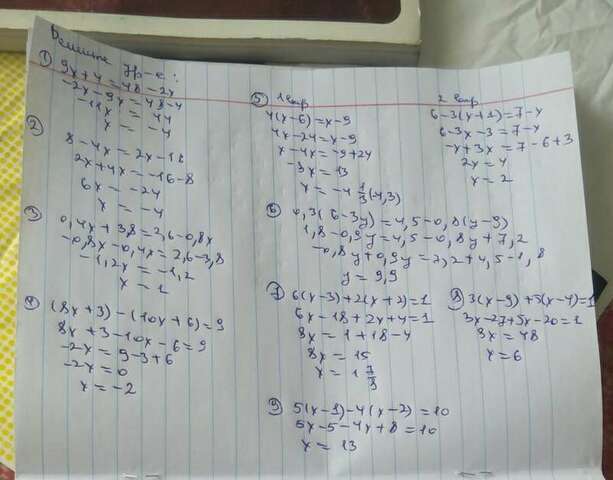 Решите ур-е:
1) 9x+4=48-2x
-2x-9x=48-4
-11x = 44
x = -4
2)
8-4x=2x-16
2x+4x=-16-8
6x = -24
x = -4
3)
0,4x+3,8=2,6-0,8x
-0,8x-0,4x=2,6-3,8
-1,2x=-1,2
x = 1
4) (8x+3)-(10x+6)=9
8x+3-10x-6=9
-2x=9-3+6
-2x=0
x=-2
5) 1 вар
4(x-6)=x-9
4x-24=x-9
x-4x=-9+24
-3x=13
x = -4 1/3 (-4,3)
2 вар
6-3(x+1)=7-x
6-3x-3=7-x
-x+3x=7-6+3
2x=4
x=2
6) 0,3(6-3y)=4,5-0,8(y-9)
1,8-0,9y=4,5-0,8y+7,2
-0,8y+0,9y=-7,2+4,5-1,8
y=9,9
7) 6(x-3)+2(x+2)=1
6x-18+2x+4=1
8x=1+18-4
8x=15
x = 1 7/9
8) 3(x-9)+5(x-4)=1
3x-27+5x-20=1
8x=48
x=6
9) 5(x-1)-4(x-2)=10
5x-5-4x+8=10
x = 13